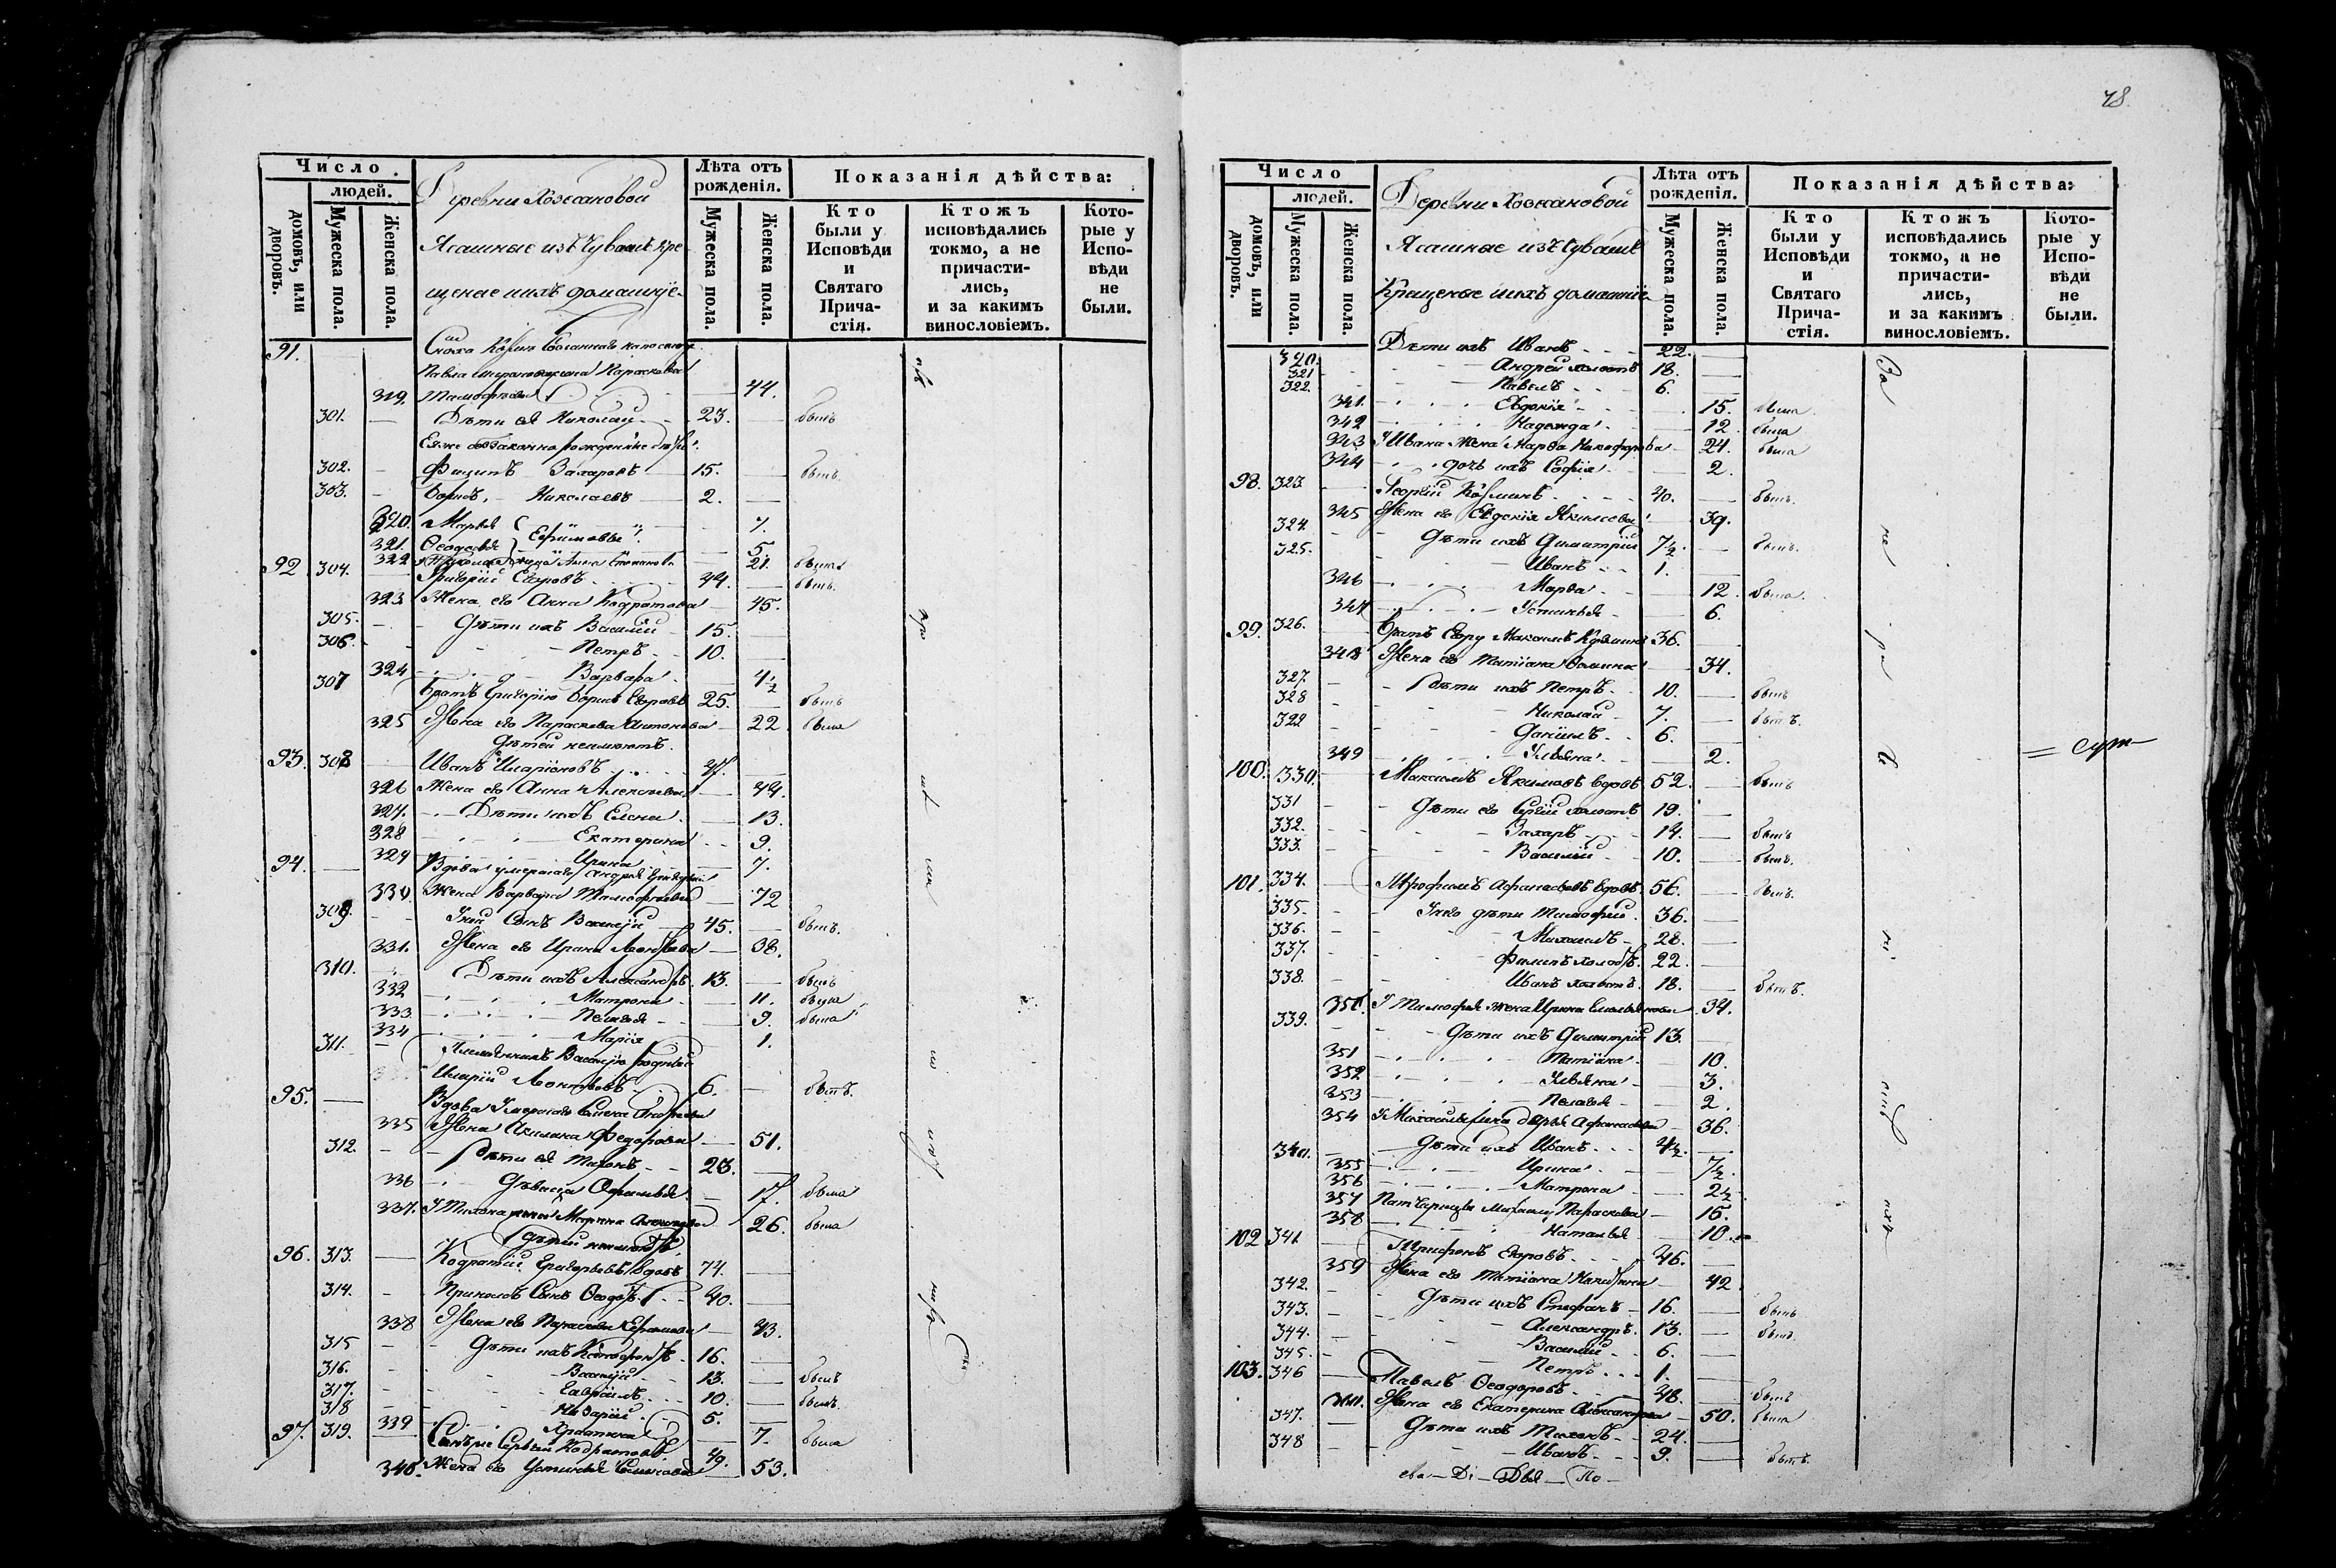 Число
людей.
домовъ, или дворовъ.
Мужеска пола.
Женска пола.
Деревни Хозесановой
Ясашные изъ Чувашъ кре-
щеные и ихъ домашніе
Лѣта отъ рожденія.
Мужеска пола.
Женска пола.
Показанія дѣйства:
Кто были у Исповѣди и Святаго Прича-стія.
Ктожъ исповѣдались токмо, а не причасти-лись, и за какимъ винословіемъ.
Кото-рые у Испо-вѣди не были.
91.
319. 44.
301. Дѣти ея Николай 23. былъ
302. Филипъ Захаровъ 15. былъ.
303. Борисъ, Николаевъ 2.
320. Марья Ефимовы 7.
321. Ѳеодосья 5.
322 Анна Степанова 21. была
92 304. Григорій Егоровъ 44. былъ.
323 Жена его Анна Кодратова 45.
305. Дѣти ихъ Василій 15.
306. Петръ 10.
324 Варвара 4½
307 Братъ Григорію Борисъ Егоровъ 25. былъ
325 Жена его Параскова Антонова 22 была
Дѣтей неимѣютъ.
93. 308 Иванъ Иларіоновъ 47.
326 Жена его Анна Алексѣева 44.
327. Дѣти ихъ Елена 13.
328 Екатерина 9.
329 Ирина 7.
94. Вдова умершаго Андрея Григорьева
330. Жена Варвара Тимофѣева 72
309. Унея Сынъ Василій 45. былъ.
331. Жена его Ирина Леонтьева 38.
310. Дѣти ихъ Александръ 13. былъ
332 Матрона 11. была
333 Пелагея 9. была
334 Марія 1.
311. Племянникъ Василію родный
Иларій Леонтьевъ 6. былъ.
95. Вдова Умершаго Семена Андреева
335 Жена Акилина Федорова 51.
312. Дѣти ея Тихонъ 23.
336 Дѣвица Офимья 17. была
337. У Тихона жена Марина 26. была
Дѣтей неимѣютъ.
96. 313. Кодратій Григорьевъ вдовъ 74.
314. Сынъ Ѳеодоръ 40.
338 Жена его Параскова Ефимова 43.
315 Дѣти ихъ 16.
316. Василій 13. былъ
317. Гаврилъ 10. былъ.
318 Назарій 5.
339 Христина 7. была
97. 319. Сергѣй Кодратовъ 49.
340. Жена его Устинья Семенова 53.
48.
Число
людей.
домовъ, или дворовъ.
Мужеска пола.
Женска пола.
Деревни Хозесановой
Ясашные изъ Чувашъ
Крещеные и ихъ домашніе
Лѣта отъ рожденія.
Мужеска пола.
Женска пола.
Показанія дѣйства:
Кто были у Исповѣди и Святаго Прича-стія.
Ктожъ исповѣдались токмо, а не причасти-лись, и за какимъ винословіемъ.
Кото-рые у Испо-вѣди не были.
320. Дѣти ихъ Иванъ 22.
321 Андрей холостъ 18.
322. Павелъ 6.
341. Евдокія 15. была.
342 Надежда 12. была
343 У Ивана Жена Марѳа Никифорова 21. была
344 дочь ихъ Софія 2.
98. 323 Георгій Козминъ 40. былъ.
345 Жена его Евдокія Якимова 39.
324. Дѣти ихъ Димитрій 7½. былъ.
325. Иванъ 1.
346 Марѳа 12. была.
347 Устинья 6.
99. 326. Братъ Егору Максимъ Козминъ 36.
348 Жена его Татіана Фомина 34.
327. Дѣти ихъ Петръ 10. былъ
328 Николай 7. былъ.
322 Даніилъ 6.
349 Ульяна 2.
100. 330. Максимъ Якимовъ вдовъ 52. былъ
331 Дѣти его Сергѣй холостъ 19.
332. Захаръ 14. былъ
333. Василій 10. былъ.
101. 334. Трофимъ Афанасьевъ вдовъ 56. былъ.
335. Унего дѣти Тимофей 36.
336. Михаилъ 28.
337. Филипъ холостъ 22.
338. Иванъ холостъ 18. былъ.
350. У Тимофея жена Ирина Емельянова 34.
339. Дѣти ихъ Димитрій 13.
351 Татіана 10.
352 Ульяна 3.
353 Пелагея 2.
354 У Михаила жена Дарья Афанасьева 36.
340. Дѣти ихъ Иванъ 4½.
355 Ирина 7½.
356 Матрона 2½
357 Падчерицы Михаилу Параскова 15.
358 Наталья 10.
102 341 Трифонъ Егоровъ 46.
359 Жена его Татіана 42
342. Дѣти ихъ Стефанъ 16. былъ
343. Александръ 13. былъ.
344. Василій 6.
345. Петръ 1.
103. 346 Павелъ Ѳеодоровъ 48. былъ
Жена его Екатерина Александрова 50. была
347. Дѣти ихъ Тихонъ 24.
348 Иванъ 9. былъ.